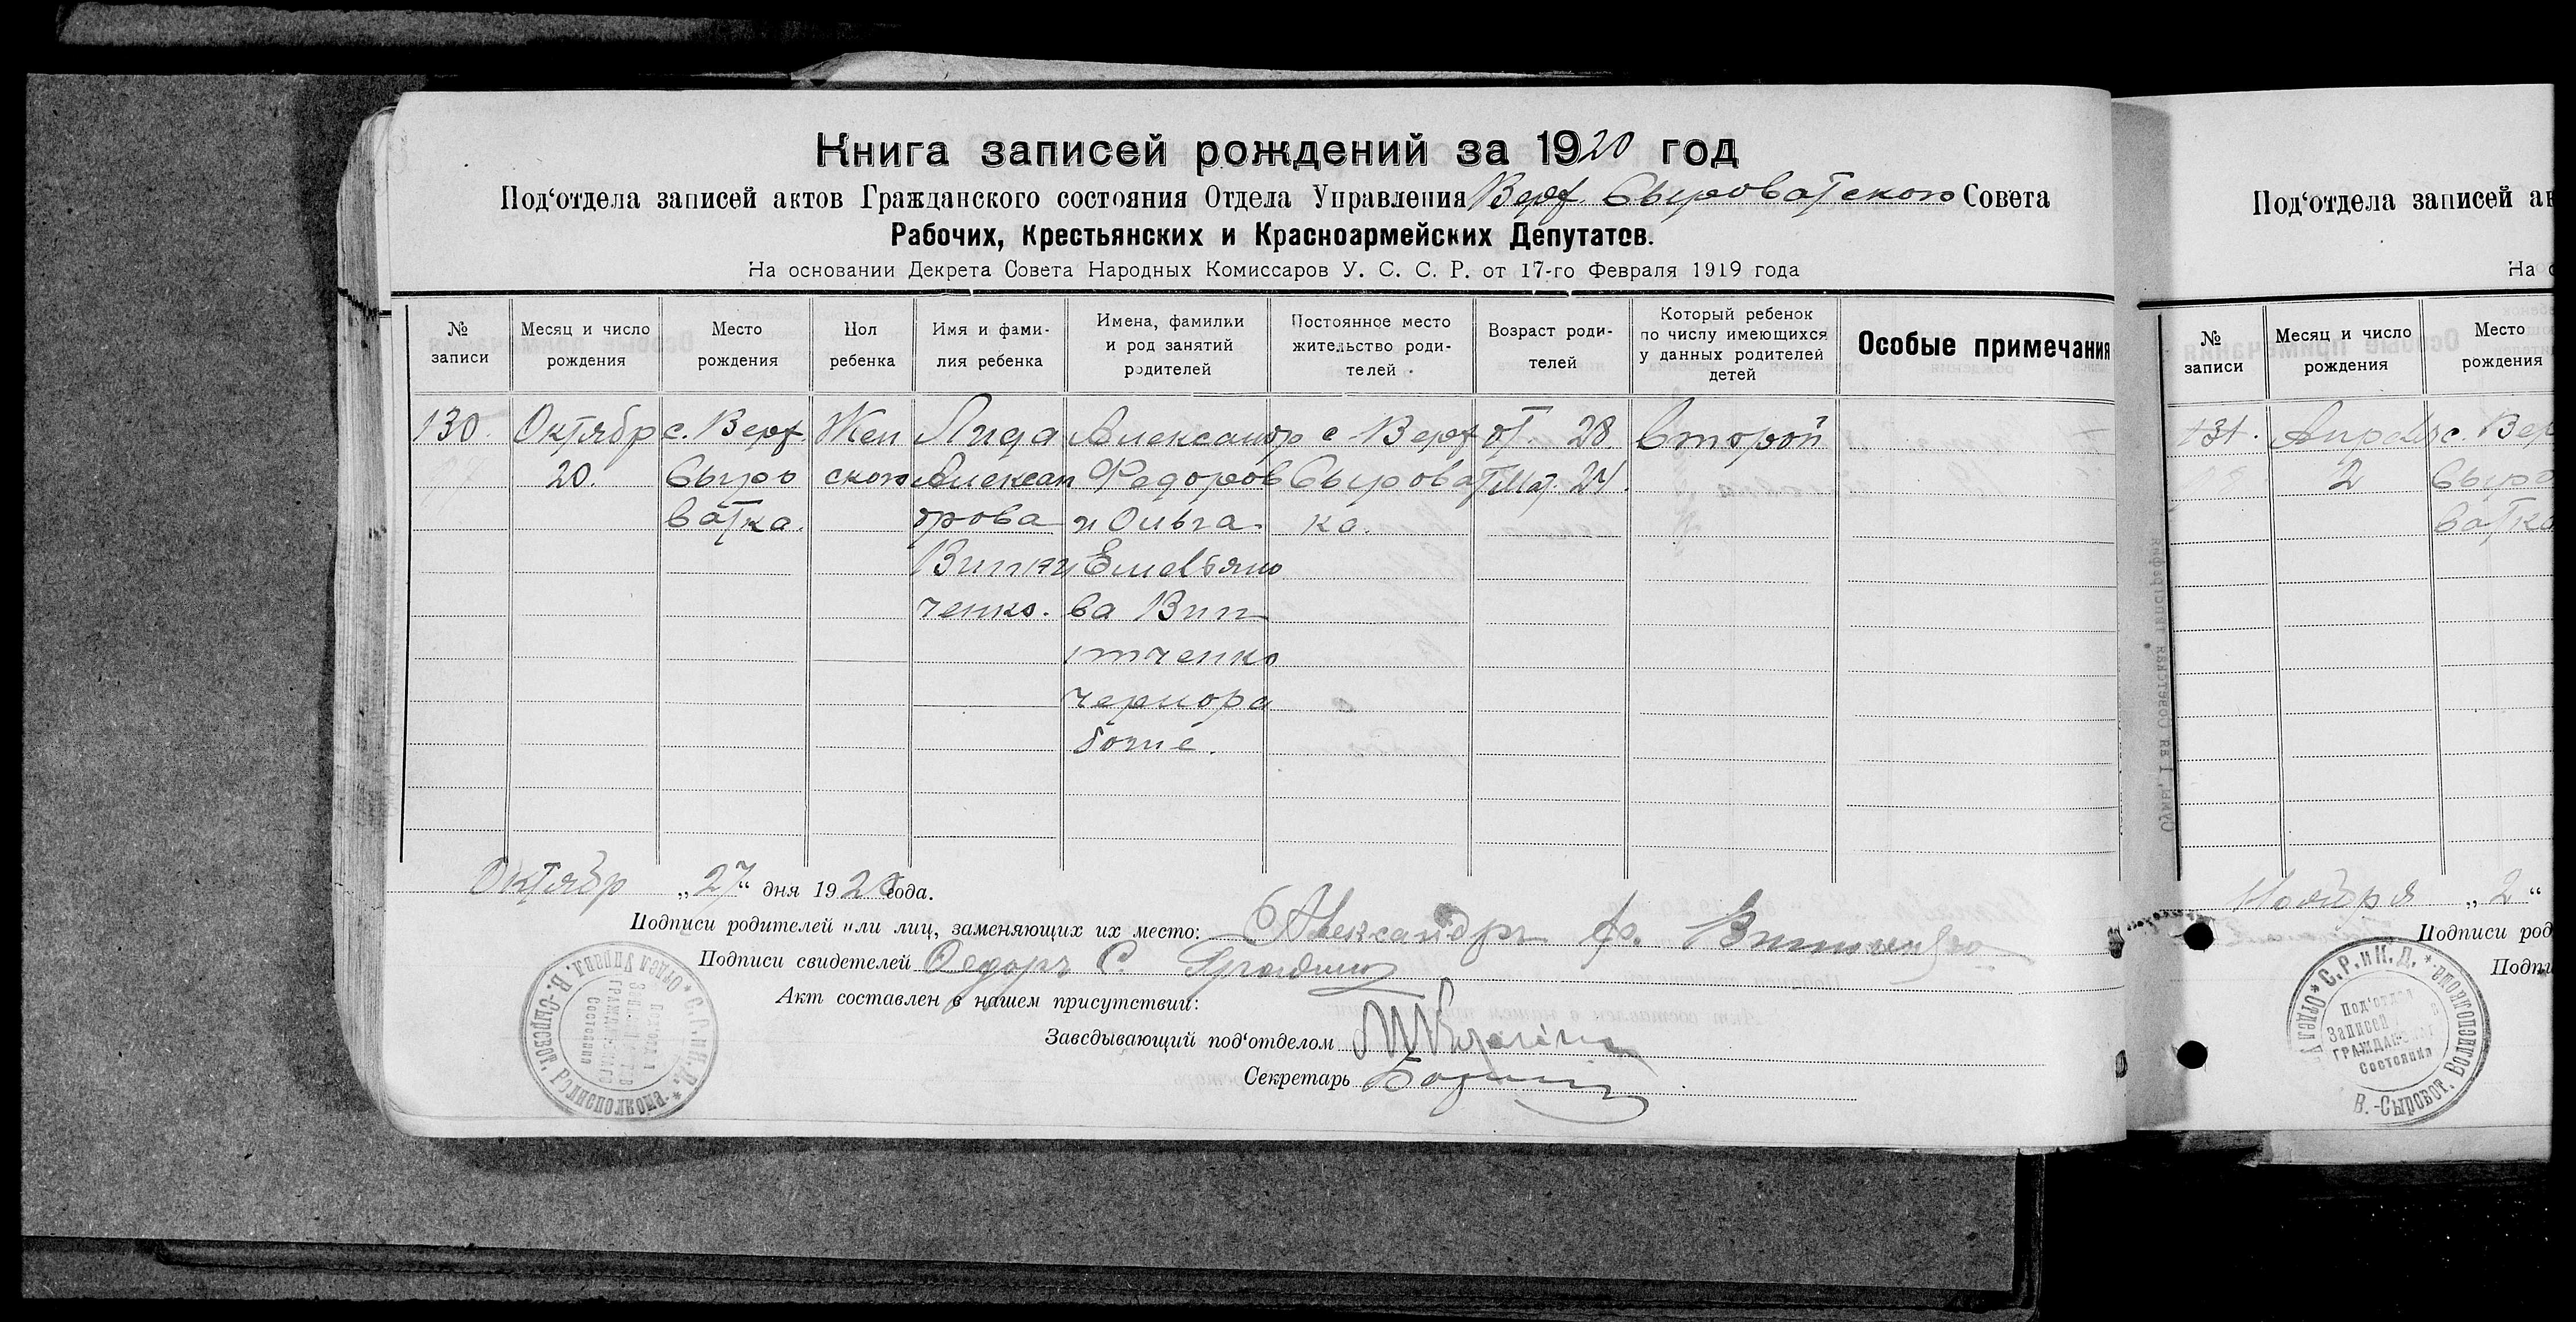 Книга записей рождений за 1920 год
Под‘отдела записей актов Гражданского состояния Отдела Управления Верх. Сыроватского Совета
Рабочих, Крестьянских и Красноармейских Депутатов.
На основании Декрета Совета Народных Комиссаров У. С. С. Р. от 17-го Февраля 1919 года
№ записи
Месяц и число рождения
Место рождения
Пол ребенка
Имя и фами-
лия ребенка
Имена, фамилки
и род занятий
родителей
Постоянное место
жительство роди-
телей
Возраст роди-
телей
Который ребенок
по числу имеющихся
у данных родителей
детей
Особые примечания
130.
Октябр
20.
с. Верх
Сыро
ватка.
Жен
ского
Лида
Алексан
дрова
Винни
ченко.
Александр
Федоров
и Ольга
Емельяно
ва Вин
ниченко
чернора
бочие.
с Верх
Сыроват
ка.
от. 28
Мат. 24.
Второй
Октябр „27“ дня 1920 года.
Подписи родителей или лиц, заменяющих их место: Александръ Ф.
Подписи свидетелей Федоръ С.
Акт составлен в нашем присутствии:
Заведывающий под‘отделом
Секретарь
* С.С.и К.Д. * Отдел Управл. В.-Сыроват. Волисполкома
Под‘отдел
Записей Актов
Гражданского
Состояния
Под‘отдела записей ак
На о
№ записи
Месяц и число рождения
Место рождения
131.
Апреля
2
с. Вер
Сыро
ватка
Ноября „2“
Подписи род
Подпи
* С.Р.и К.Д. * Отдел Упр. В.-Сыроват. Волисполкома
Под‘отдел
Записей
Гражданског
Состояния
Сумы, 1-ая Советская типография